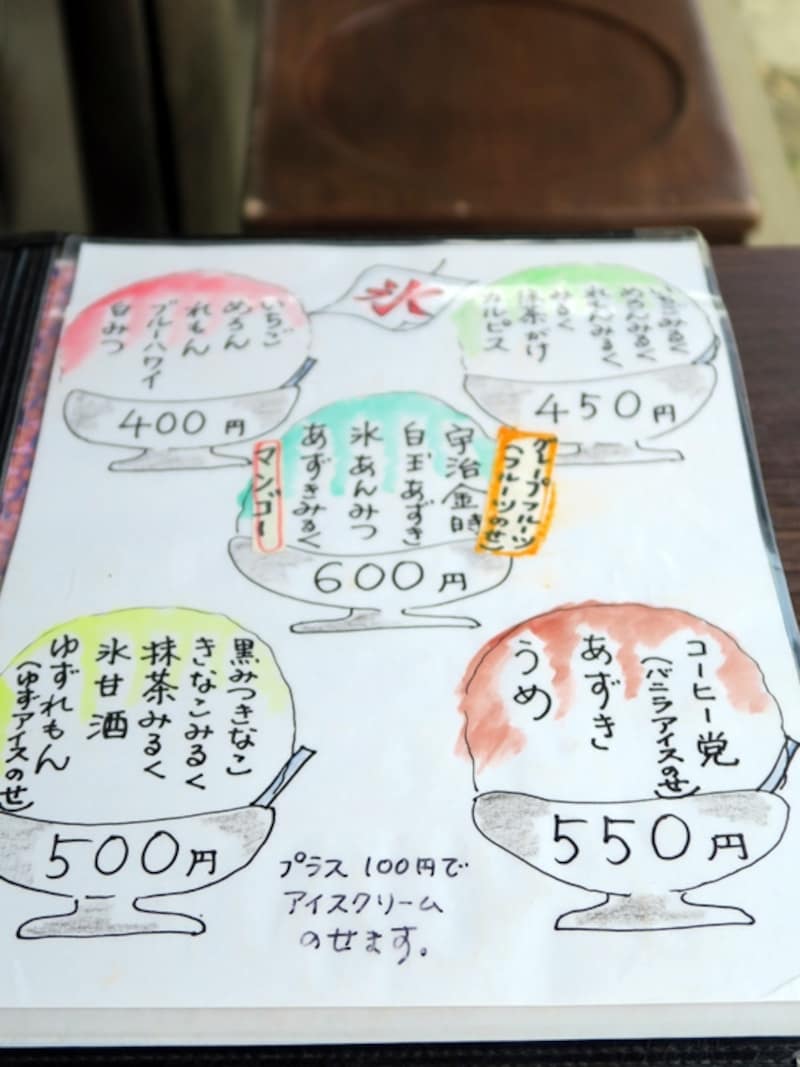 氷
いちご
めろん
れもん
ブルーハワイ
白みつ
400円
いちごみるく
めろんみるく
れもんみるく
みるく
抹茶がけ
カルピス
450円
グレープフルーツ
(フルーツのせ)
宇治金時
白玉あずき
氷あんみつ
あずきみるく
マンゴー
600円
黒みつきなこ
きなこみるく
抹茶みるく
氷甘酒
ゆずれもん
(ゆずアイスのせ)
500円
コーヒー党
(バニラアイスのせ)
あずき
うめ
550円
プラス100円で
アイスクリーム
のせます。